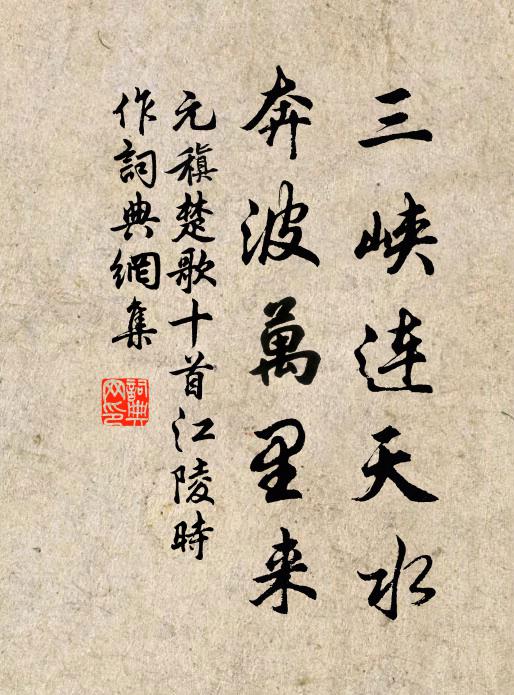 三峡连天水
奔波萬里来
元稹楚歌十首江陵時
作詞典網集
詞典
网印